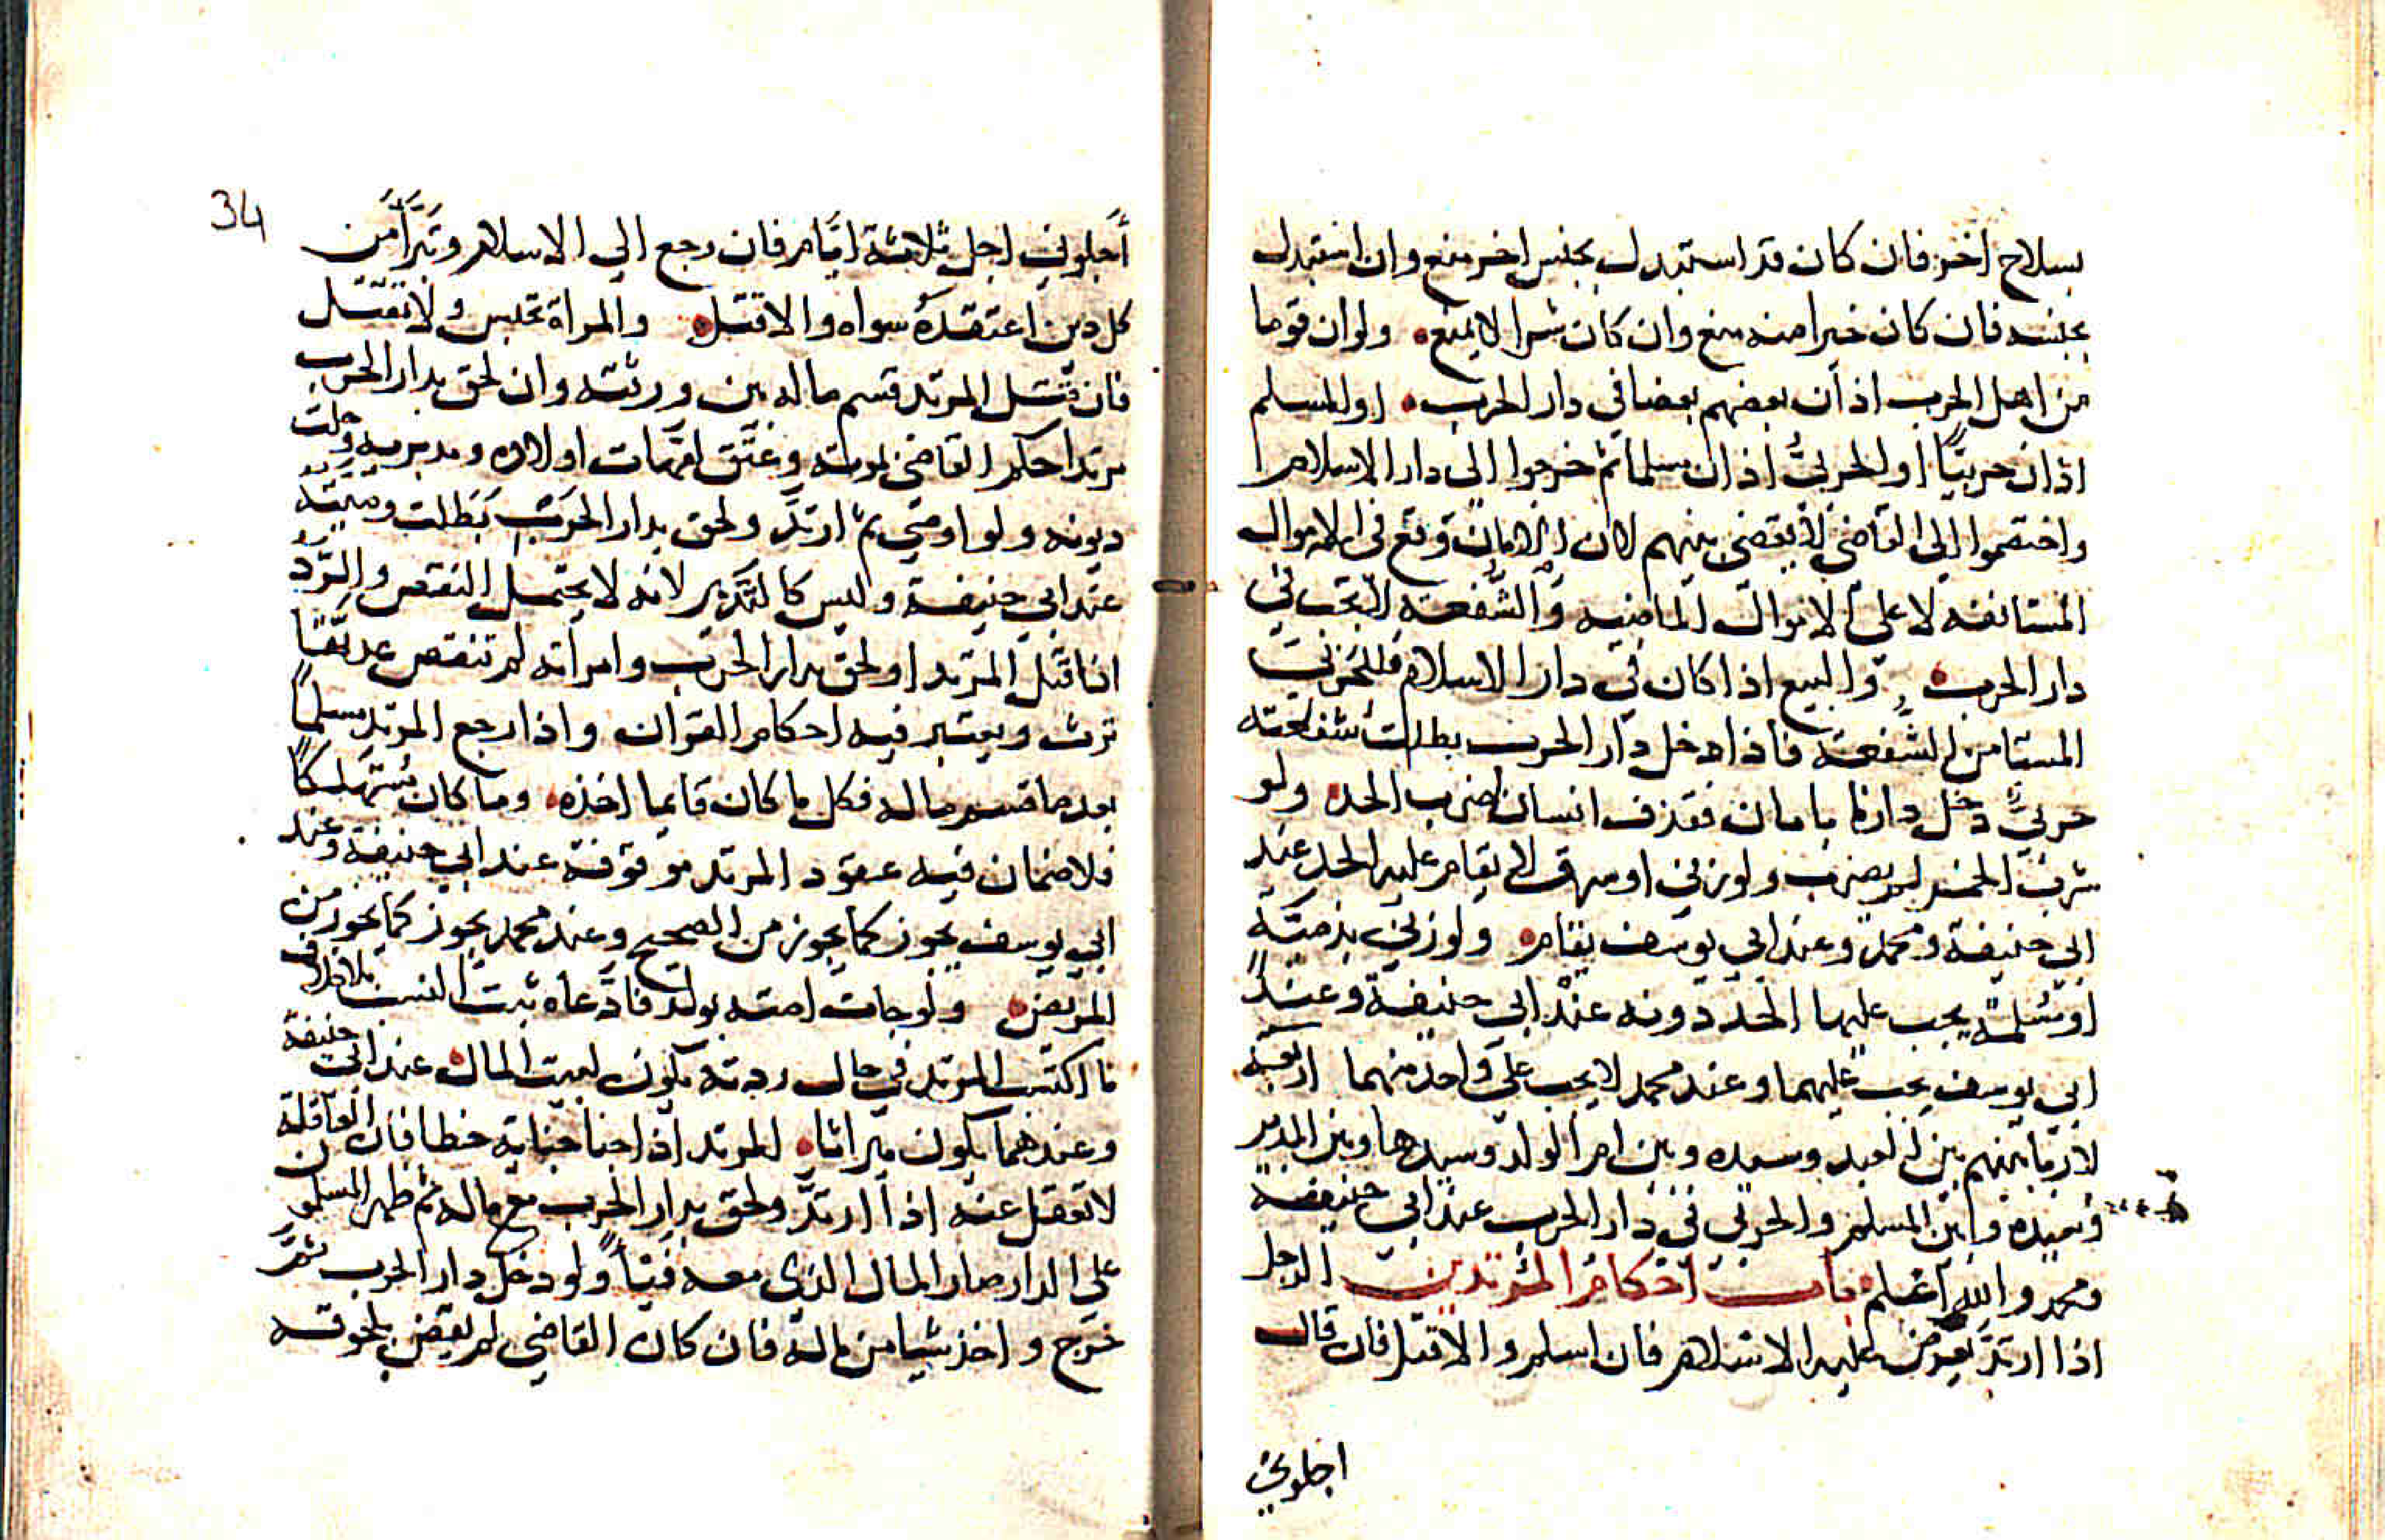 بسلاح اخر فان كان قد استبدل بجنس اخر منع وان استبدل
بجنسه فان كان خيرا منه منع وان كان شرا لا يمنع ولو ان قوما
من اهل الحرب اذ ان بعضهم بعضا في دار الحرب او المسلم
اذ ان حربيا او الحربي اذ ان مسلما ثم خرجوا الى دار الاسلام
واختصموا الى القاضي لا يقضي بينهم لان الامان وقع في الاموال
المستانفه لا على الاموال الماضيه والشفعة لا تجب في
دار الحرب والبيع اذا كان في دار الاسلام فللحربي
المستامن الشفعة فاذا دخل دار الحرب بطلت شفعته
حربي دخل دارنا بامان فقذف انسان ضرب الحد ولو
شرب الخمر لم يضرب ولو زني او سرق لا يقام عليه الحد عند
ابي حنيفة ومحمد وعند ابي يوسف يقام ولو زني بذمية
او مسلمة يجب عليها الحد دونه عند ابي حنيفة وعند
ابي يوسف يجب عليهما وعند محمد لا يجب على واحد منهما اربعة
لا ربا بينهم بين العبد وسيده وبين ام الولد وسيدها وبين المدبر
وسيده وبين المسلم والحربي في دار الحرب عند ابي حنيفة
ومحمد والله اعلم باب احكام المرتدين الرجل
اذا ارتد يعرض عليه الاسلام فان اسلم والا قتل فان قال
اجلوني
34
أجلوني اجل ثلاثة ايام فان رجع الي الاسلام وتبرأ من
كل دين اعتقده سواه والا قتل والمراة تحبس ولا تقتل
فان قتل المرتد قسم ماله بين ورثته وان لحق بدار الحرب
مرتدا حكم القاضي بموته وعتق امهات اولاده ومدبريه وحلت
ديونه ولو اوصي ثم ارتد ولحق بدار الحرب بطلت وصيته
عند ابي حنيفة وليس كالتدبير لانه لا يحتمل النقض والرد
اذا قتل المرتد او لحق بدار الحرب وامراته لم تنقض عدتها
ترث ويعتبر فيه احكام القران واذا رجع المرتد مسلما
بعد ما قسم ماله فكل ما كان قايما اخذه وما كان مستهلكا
فلا ضمان فيه عقود المرتد موقوفة عند ابي حنيفة وعند
ابي يوسف يجوز كما يجوز من الصحيح وعند محمد يجوز كما يجوز من
المريض ولو جات امته بولد فادعاه ثبت النسب بلا خلاف
ما اكتسب المرتد في حال ردته يكون لبيت المال عند ابي حنيفة
وعندهما يكون ميراثا المرتد اذا جنا جناية خطا فان العاقلة
لا تعقل عنه اذا ارتد ولحق بدار الحرب مع ماله ثم ظهر المسلمون
على الدار صار المال الذي معه فيئا ولو دخل دار الحرب ثم
خرج واخذ شيا من ماله فان كان القاضي لم يقض بلحوقه